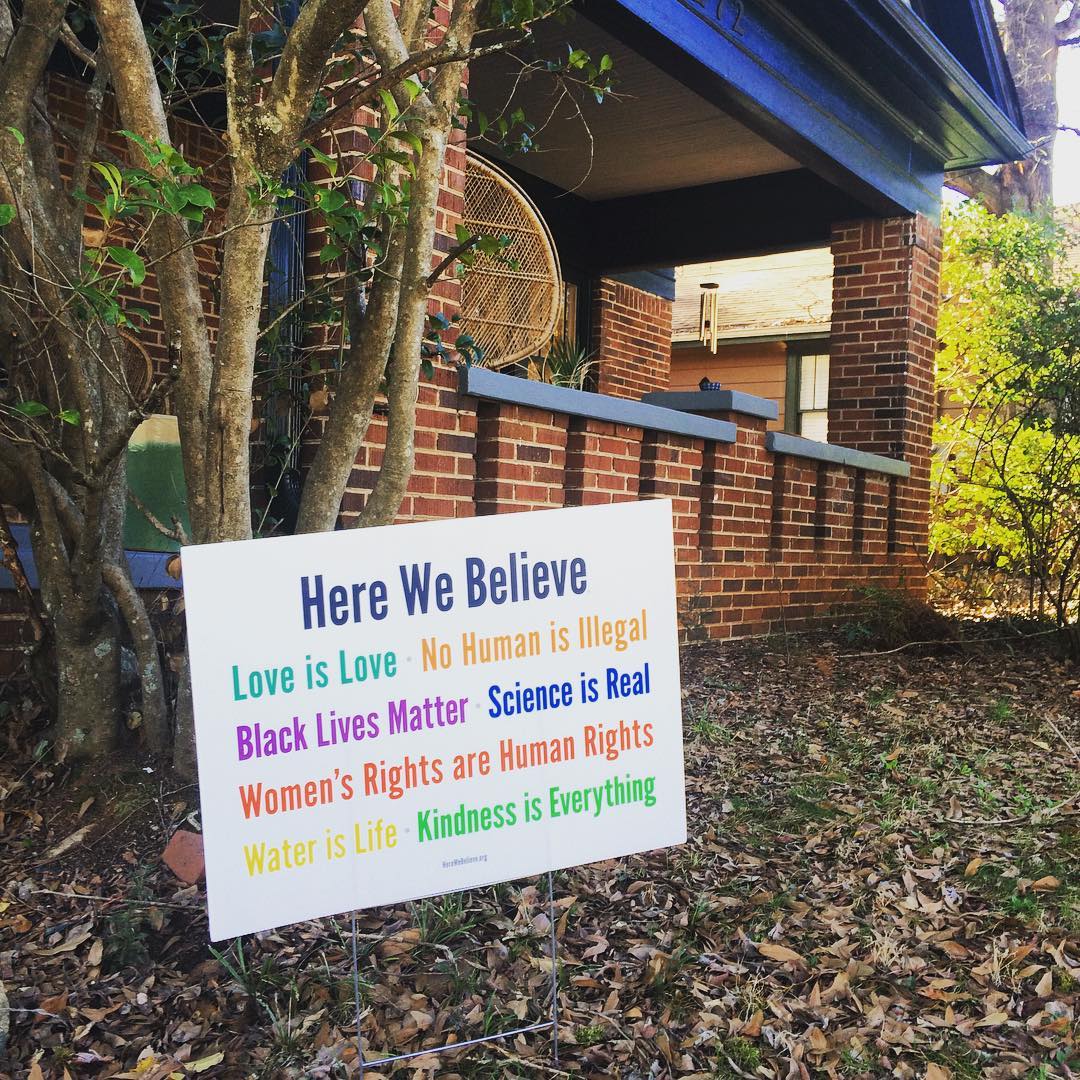 Here We Believe
Love is Love · No Human is Illegal
Black Lives Matter · Science is Real
Women's Rights are Human Rights
Water is Life · Kindness is Everything
HereWeBelieve.org